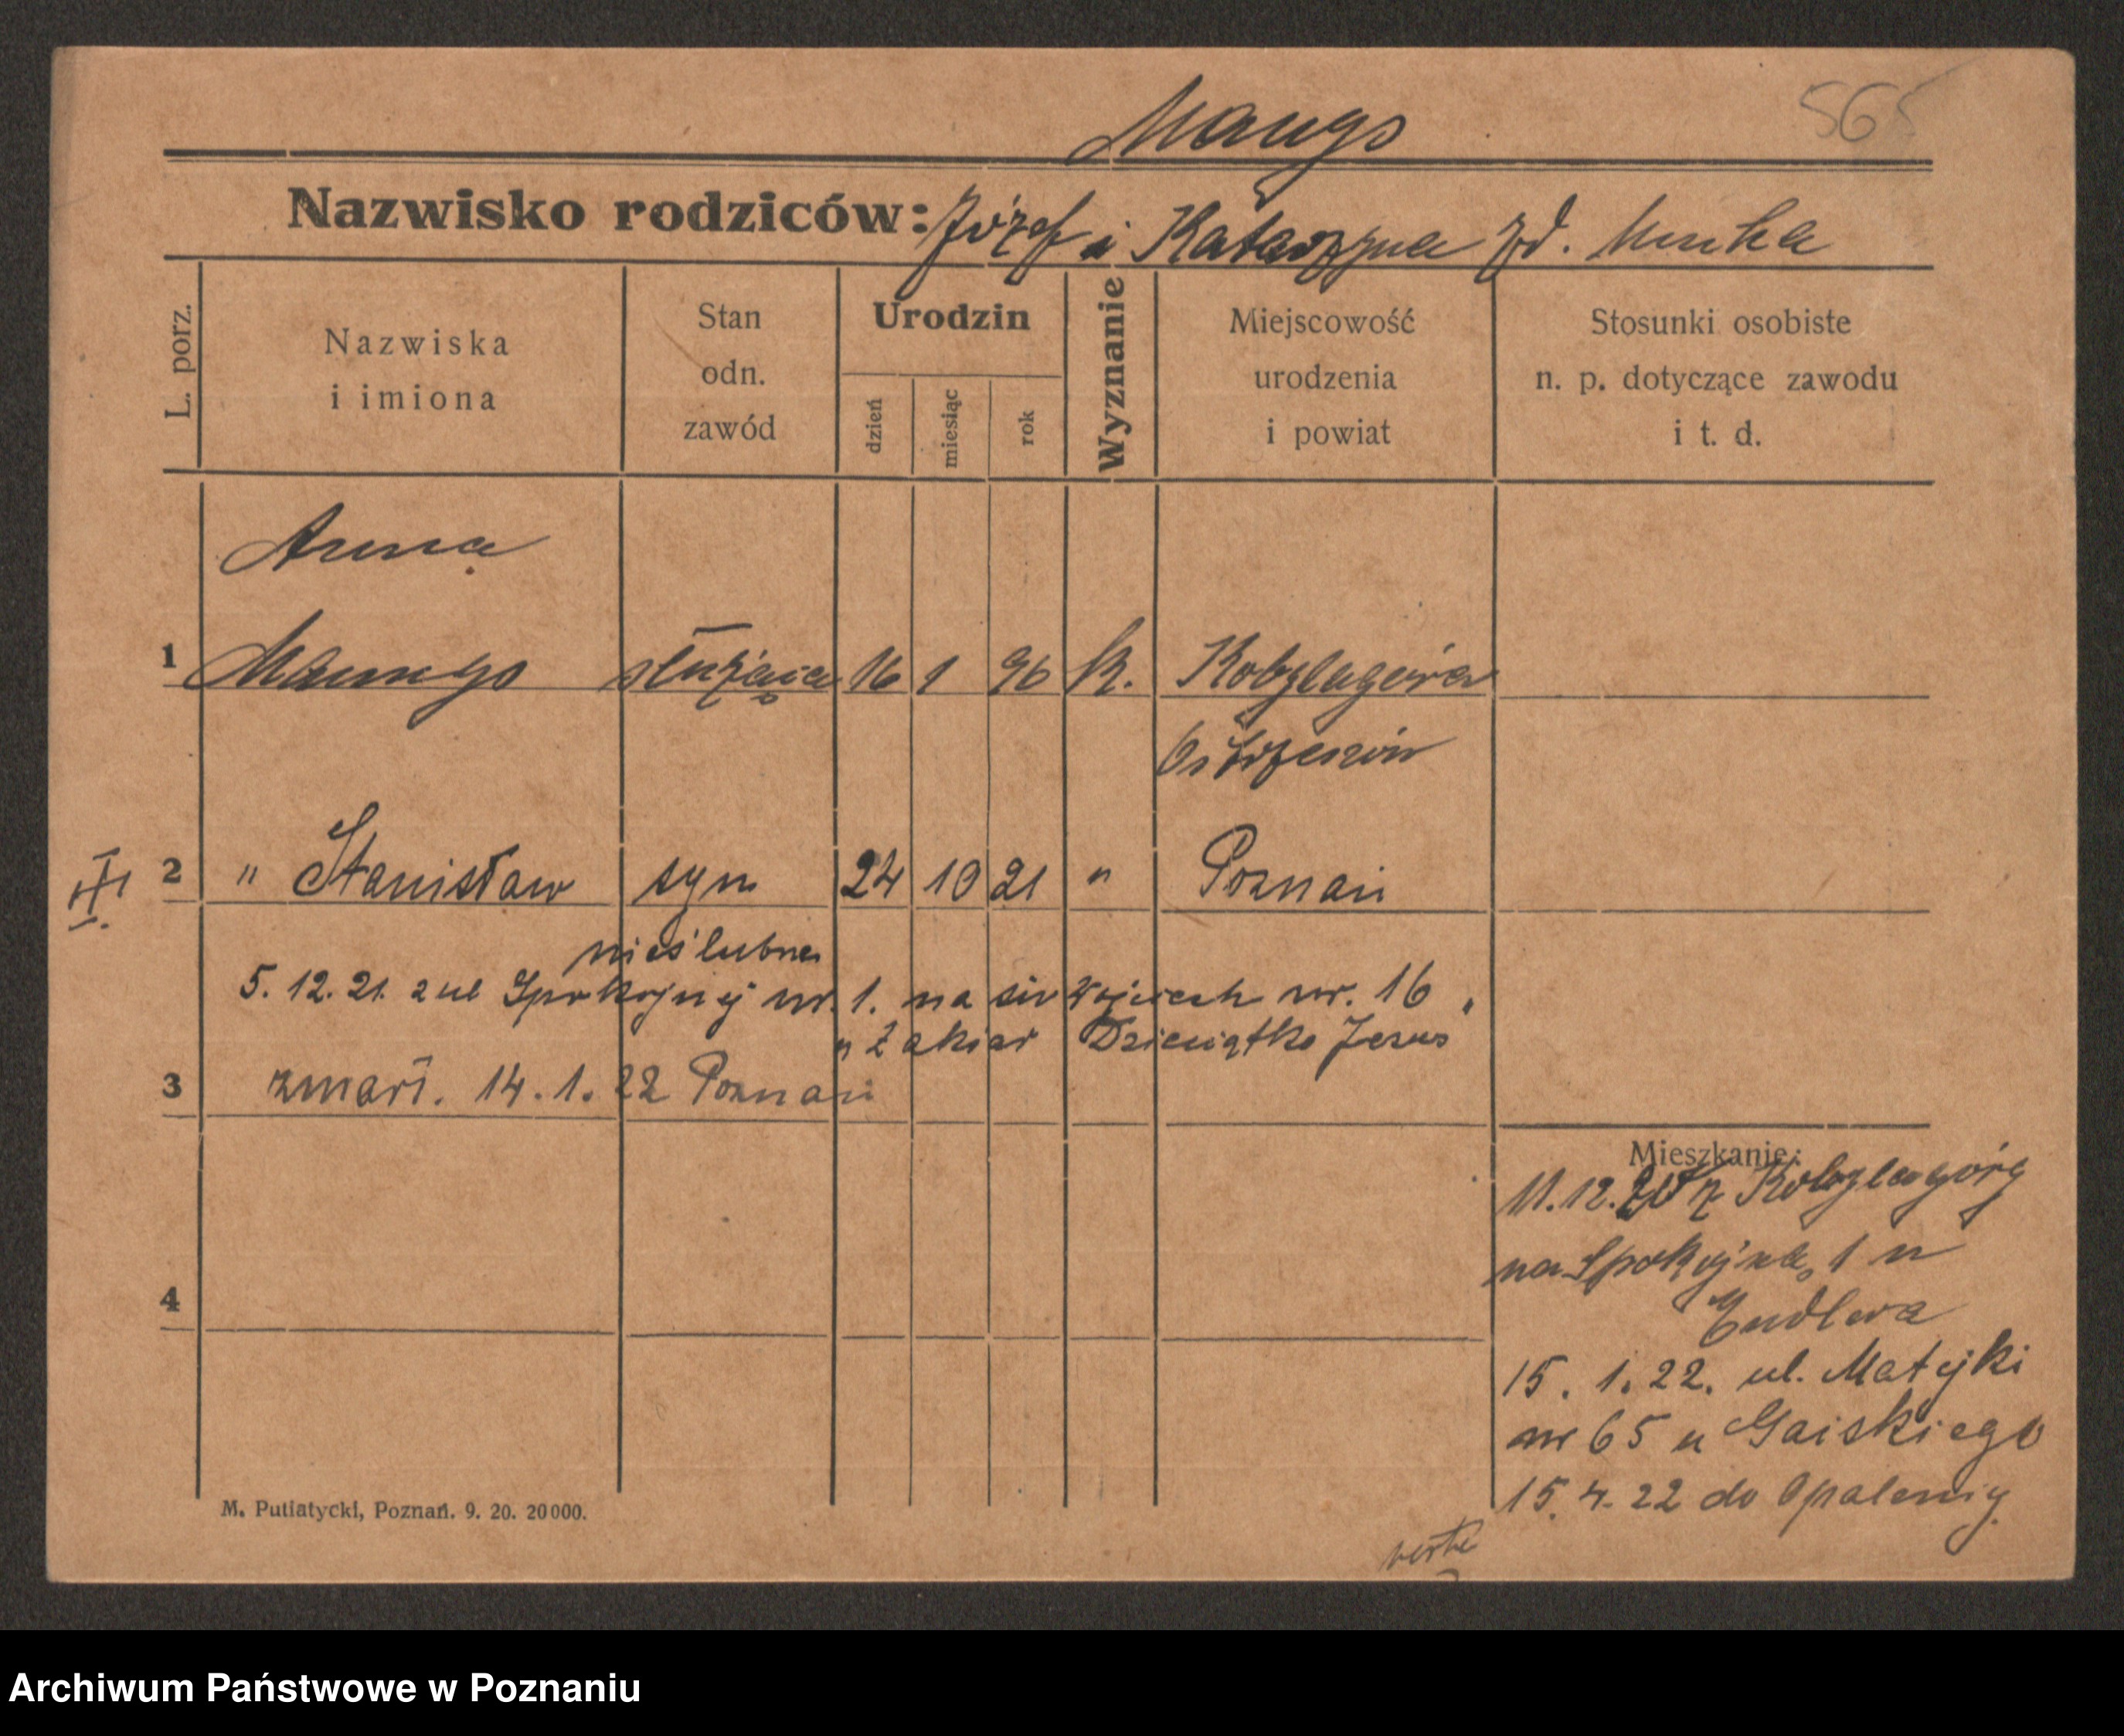 565
Mango
Nazwisko rodziców: Józef i Katarzyna zd.
L. porz.
Nazwiska i imiona
Stan odn. zawód
Urodzin
dzień
miesiąc
rok
Wyznanie
Miejscowość urodzenia i powiat
Stosunki osobiste n. p. dotyczące zawodu i t. d.
Anna
1 Mango służąca 16 1 96 k. Kobylagóra
Ostrzeszów
2 " Stanisław syn 24 10 21 " Poznań
nieślubne
5. 12. 21. z ul Spokojnej nr. 1. na św Wojciech nr. 16
Dzieciątko Jezus
3 zmarł. 14. 1. 22 Poznań
4
Mieszkanie:
11. 12. z Kobylagóry
na Spokojną 1 u
Endlera
15. 1. 22. ul. Matejki
nr 65 u Gaiskiego
15. 4. 22 do Opalenicy
verte
M. Putiatycki, Poznań. 9. 20. 20000.
Archiwum Państwowe w Poznaniu